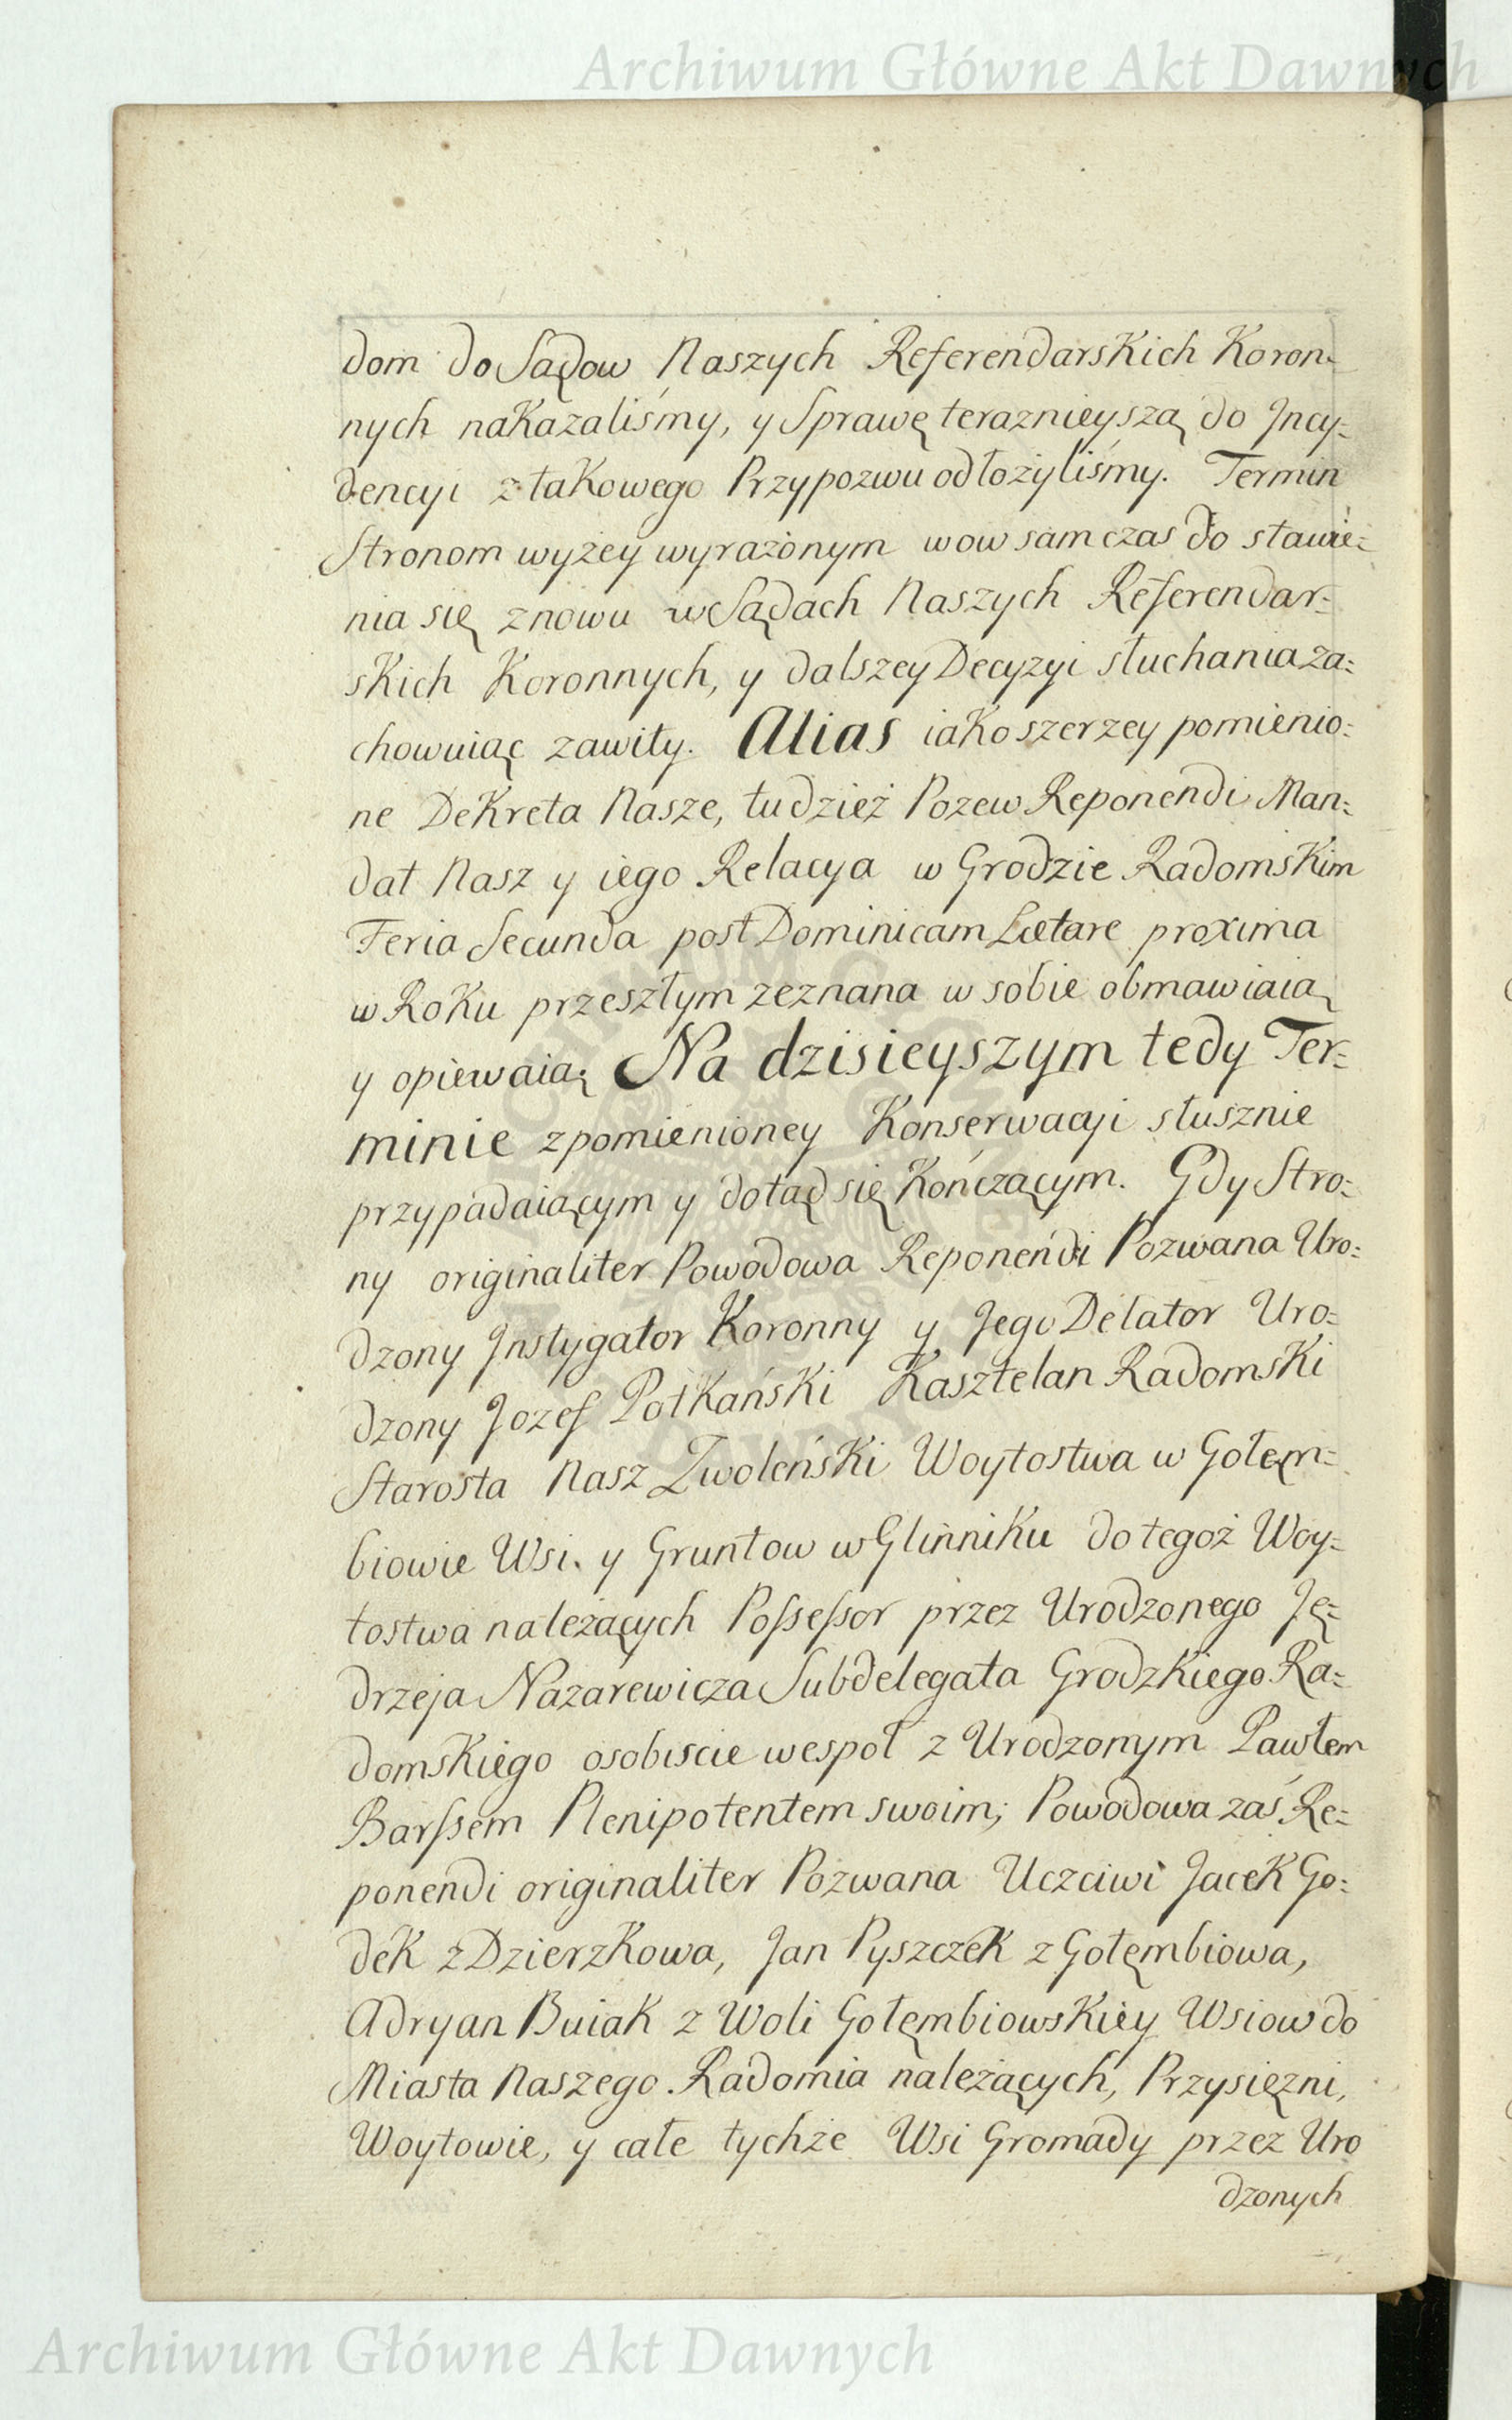 Archiwum Główne Akt Dawnych
dom do Sądow Naszych Referendarskich Koron=
nych nakazaliśmy, y Sprawę teraznieyszą do Incy=
dencyi z takowego Przypozwu odłożyliśmy. Termin
Stronom wyżey wyrażonym wow sam czas do stawie=
nia się znowu w Sądach Naszych Referendar=
skich Koronnych, y dalszey Decyzyi słuchania za=
chowuiąc zawity. Alias iako szerzey pomienio=
ne Dekreta Nasze, tudzież Pozew Reponendi Man=
dat Nasz y iego Relacya w Grodzie Radomskim
Feria Secunda post Dominicam Lætare proxima
w Roku przeszłym zeznana w sobie obmawiaią
y opiewaią. Na dzisieyszym tedy Ter=
minie z pomienioney Konserwacyi słusznie
przypadaiącym y dotąd się kończącym. Gdy Stro=
ny originaliter Powodowa Reponendi Pozwana Uro=
dzony Instygator Koronny y Jego Delator Uro=
dzony Jozef Potkański Kasztelan Radomski
Starosta Nasz Zwoleński Woytostwa w Gołęm=
biowie Wsi. y Gruntow w Glinniku do tegoż Woy=
tostwa należących Possessor przez Urodzonego Ję=
drzeja Nazarewicza Subdelegata Grodzkiego Ra=
domskiego osobiscie wespoł z Urodzonym Pawłem
Barssem Plenipotentem swoim; Powodowa zaś Re=
ponendi originaliter Pozwana Uczciwi Jacek Go=
dek z Dzierzkowa, Jan Pyszczek z Gołęmbiowa,
Adryan Buiak z Woli Gołęmbiowskiey Wsiow do
Miasta Naszego Radomia należących, Przysięzni,
Woytowie, y całe tychże Wsi Gromady przez Uro
dzonych
Archiwum Główne Akt Dawnych